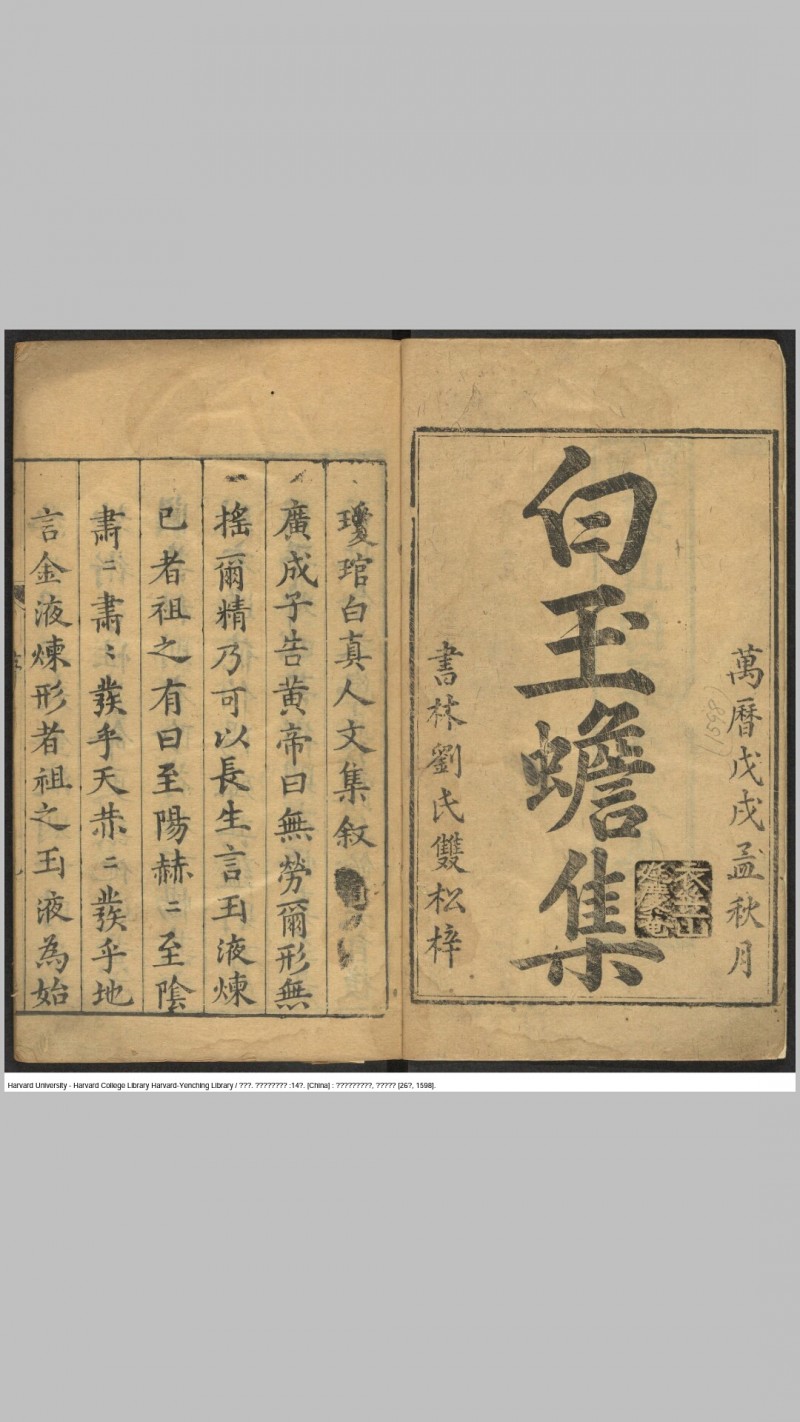 萬曆戊戌孟秋月
(1598)
白玉蟾集
書林劉氏雙松梓
瓊琯白真人文集叙
廣成子告黄帝曰無勞爾形無
搖爾精乃可以長生言玉液煉
已者祖之有曰至陽赫〻至陰
肅〻肅〻發乎天赫〻發乎地
言金液煉形者祖之玉液為始
Harvard University - Harvard College Library Harvard-Yenching Library / ???. ???????? :14?. [China] : ?????????, ????? [26?, 1598].